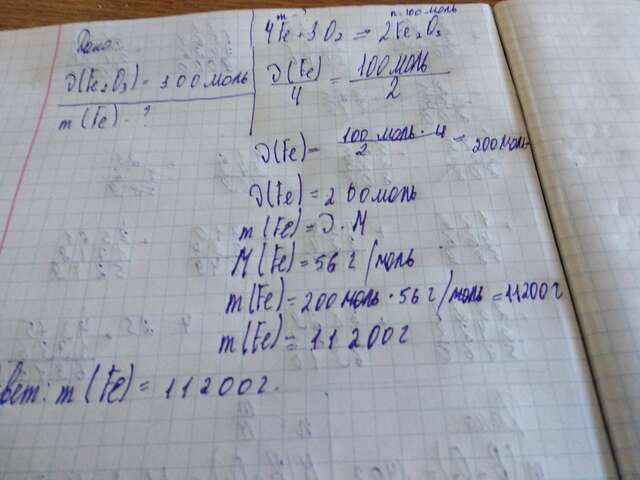 Дано:
ν(Fe₂O₃) - 100 моль
m(Fe) - ?
m n-100 моль
4Fe + 3O₂ = 2Fe₂O₃
ν(Fe)/4 = 100 моль/2
ν(Fe) = 100 моль · 4/2 = 200 моль
ν(Fe) = 200 моль
m(Fe) = ν · M
M(Fe) = 56 г/моль
m(Fe) = 200 моль · 56 г/моль = 11200 г
m(Fe) = 11 200 г
вет: m(Fe) = 11200 г.